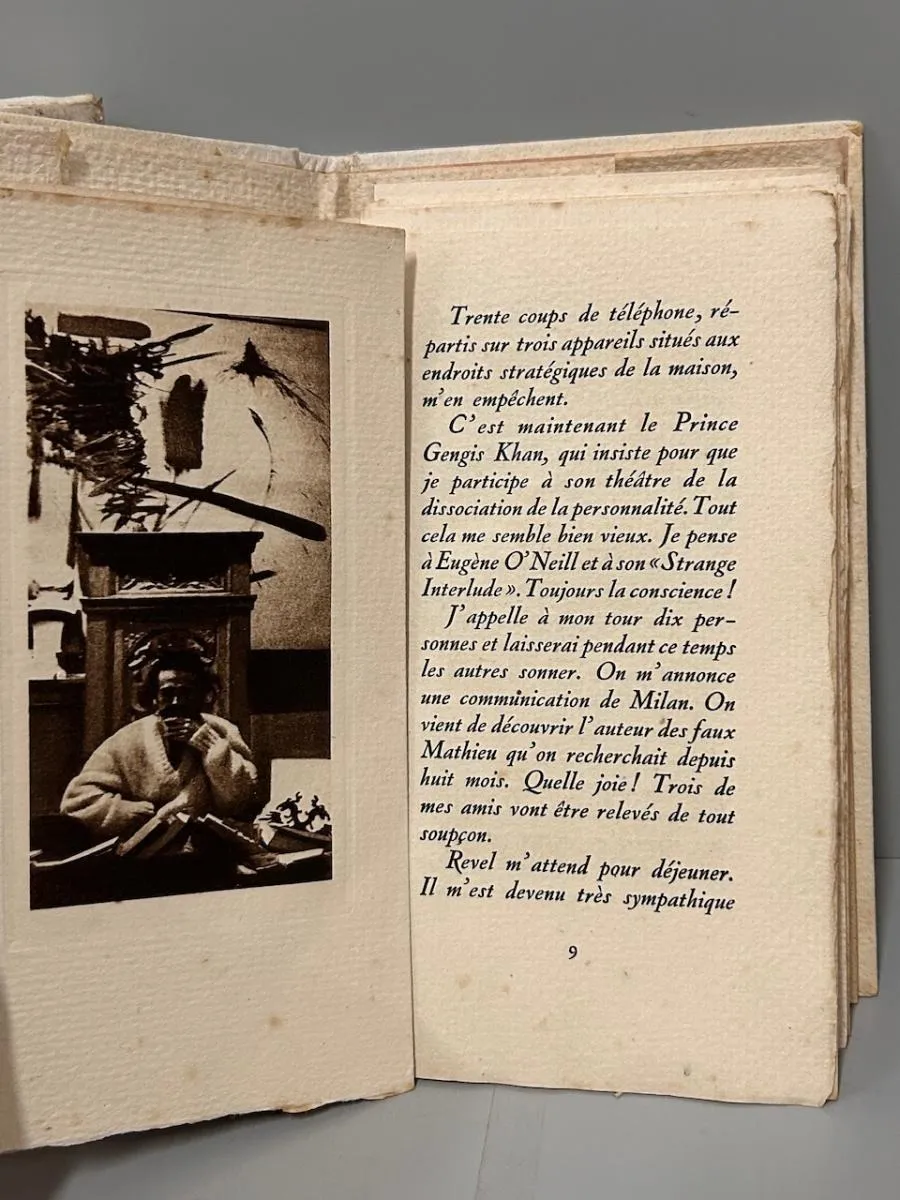 Trente coups de téléphone, ré-
partis sur trois appareils situés aux
endroits stratégiques de la maison,
m'en empêchent.
C'est maintenant le Prince
Gengis Khan, qui insiste pour que
je participe à son théâtre de la
dissociation de la personnalité. Tout
cela me semble bien vieux. Je pense
à Eugène O'Neill et à son «Strange
Interlude». Toujours la conscience !
J'appelle à mon tour dix per-
sonnes et laisserai pendant ce temps
les autres sonner. On m'annonce
une communication de Milan. On
vient de découvrir l'auteur des faux
Mathieu qu'on recherchait depuis
huit mois. Quelle joie ! Trois de
mes amis vont être relevés de tout
soupçon.
Revel m'attend pour déjeuner.
Il m'est devenu très sympathique
9